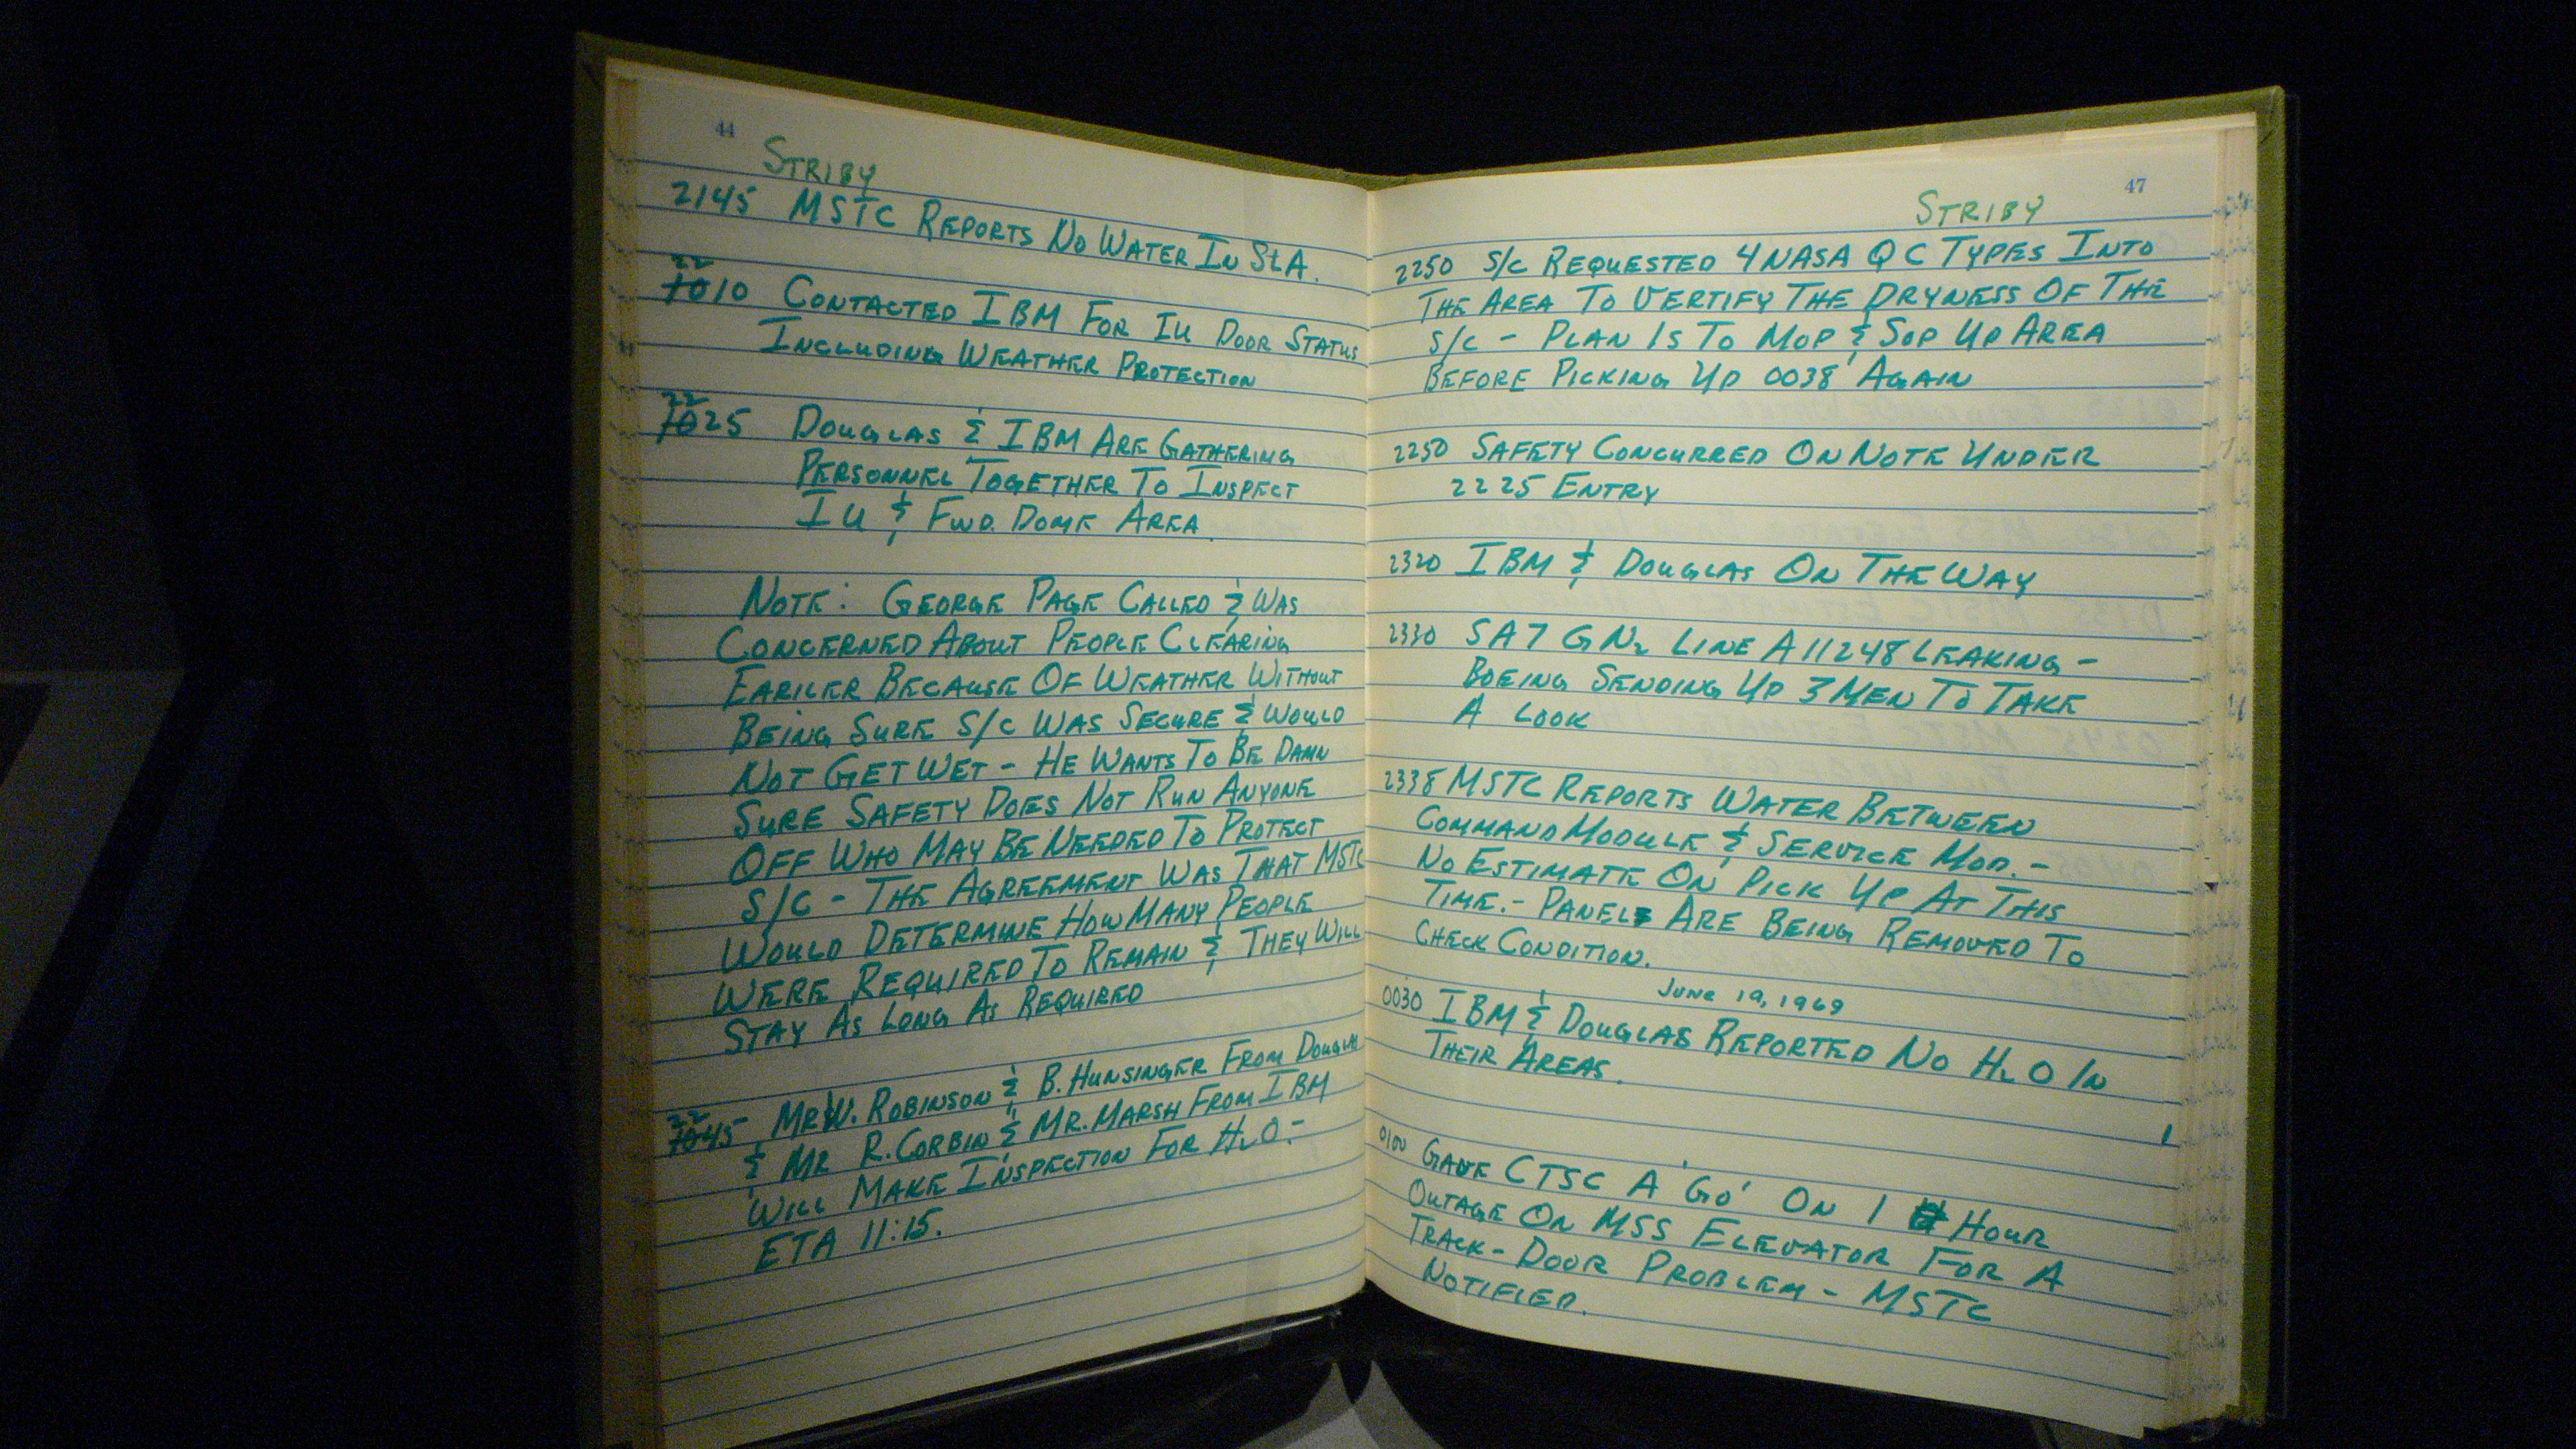 44
STRIBY
2145 MSTC REPORTS NO WATER IN S&A.
2210 CONTACTED IBM FOR IU DOOR STATUS
INCLUDING WEATHER PROTECTION
2225 DOUGLAS & IBM ARE GATHERING
PERSONNEL TOGETHER TO INSPECT
IU & FWD. DOME AREA.
NOTE: GEORGE PAGE CALLED & WAS
CONCERNED ABOUT PEOPLE CLEARING
EARILER BECAUSE OF WEATHER WITHOUT
BEING SURE S/C WAS SECURE & WOULD
NOT GET WET - HE WANTS TO BE DAMN
SURE SAFETY DOES NOT RUN ANYONE
OFF WHO MAY BE NEEDED TO PROTECT
S/C - THE AGREEMENT WAS THAT MSTC
WOULD DETERMINE HOW MANY PEOPLE
WERE REQUIRED TO REMAIN & THEY WILL
STAY AS LONG AS REQUIRED
2245 MR W. ROBINSON & B. HUNSINGER FROM DOUGLAS
& MR R. CORBIN & MR. MARSH FROM IBM
WILL MAKE INSPECTION FOR H2O. -
ETA 11:15.
47
STRIBY
2250 S/C REQUESTED 4 NASA QC TYPES INTO
THE AREA TO VERTIFY THE DRYNESS OF THE
S/C - PLAN IS TO MOP & SOP UP AREA
BEFORE PICKING UP 0038 AGAIN
2250 SAFETY CONCURRED ON NOTE UNDER
2225 ENTRY
2320 IBM & DOUGLAS ON THE WAY
2330 SA7 GN2 LINE A11248 LEAKING -
BOEING SENDING UP 3 MEN TO TAKE
A LOOK
2338 MSTC REPORTS WATER BETWEEN
COMMAND MODULE & SERVICE MOD. -
NO ESTIMATE ON PICK UP AT THIS
TIME. - PANELS ARE BEING REMOVED TO
CHECK CONDITION.
JUNE 19, 1969
0030 IBM & DOUGLAS REPORTED NO H2O IN
THEIR AREAS.
0100 GAVE CTSC A 'GO' ON 1 HOUR
OUTAGE ON MSS ELEVATOR FOR A
TRACK - DOOR PROBLEM - MSTC
NOTIFIED.